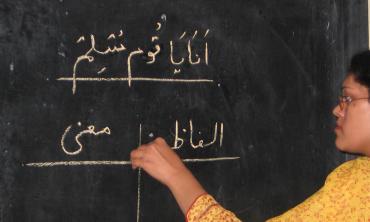 اَنَايَا قُوم مُسْلِم
الفاظ معنی